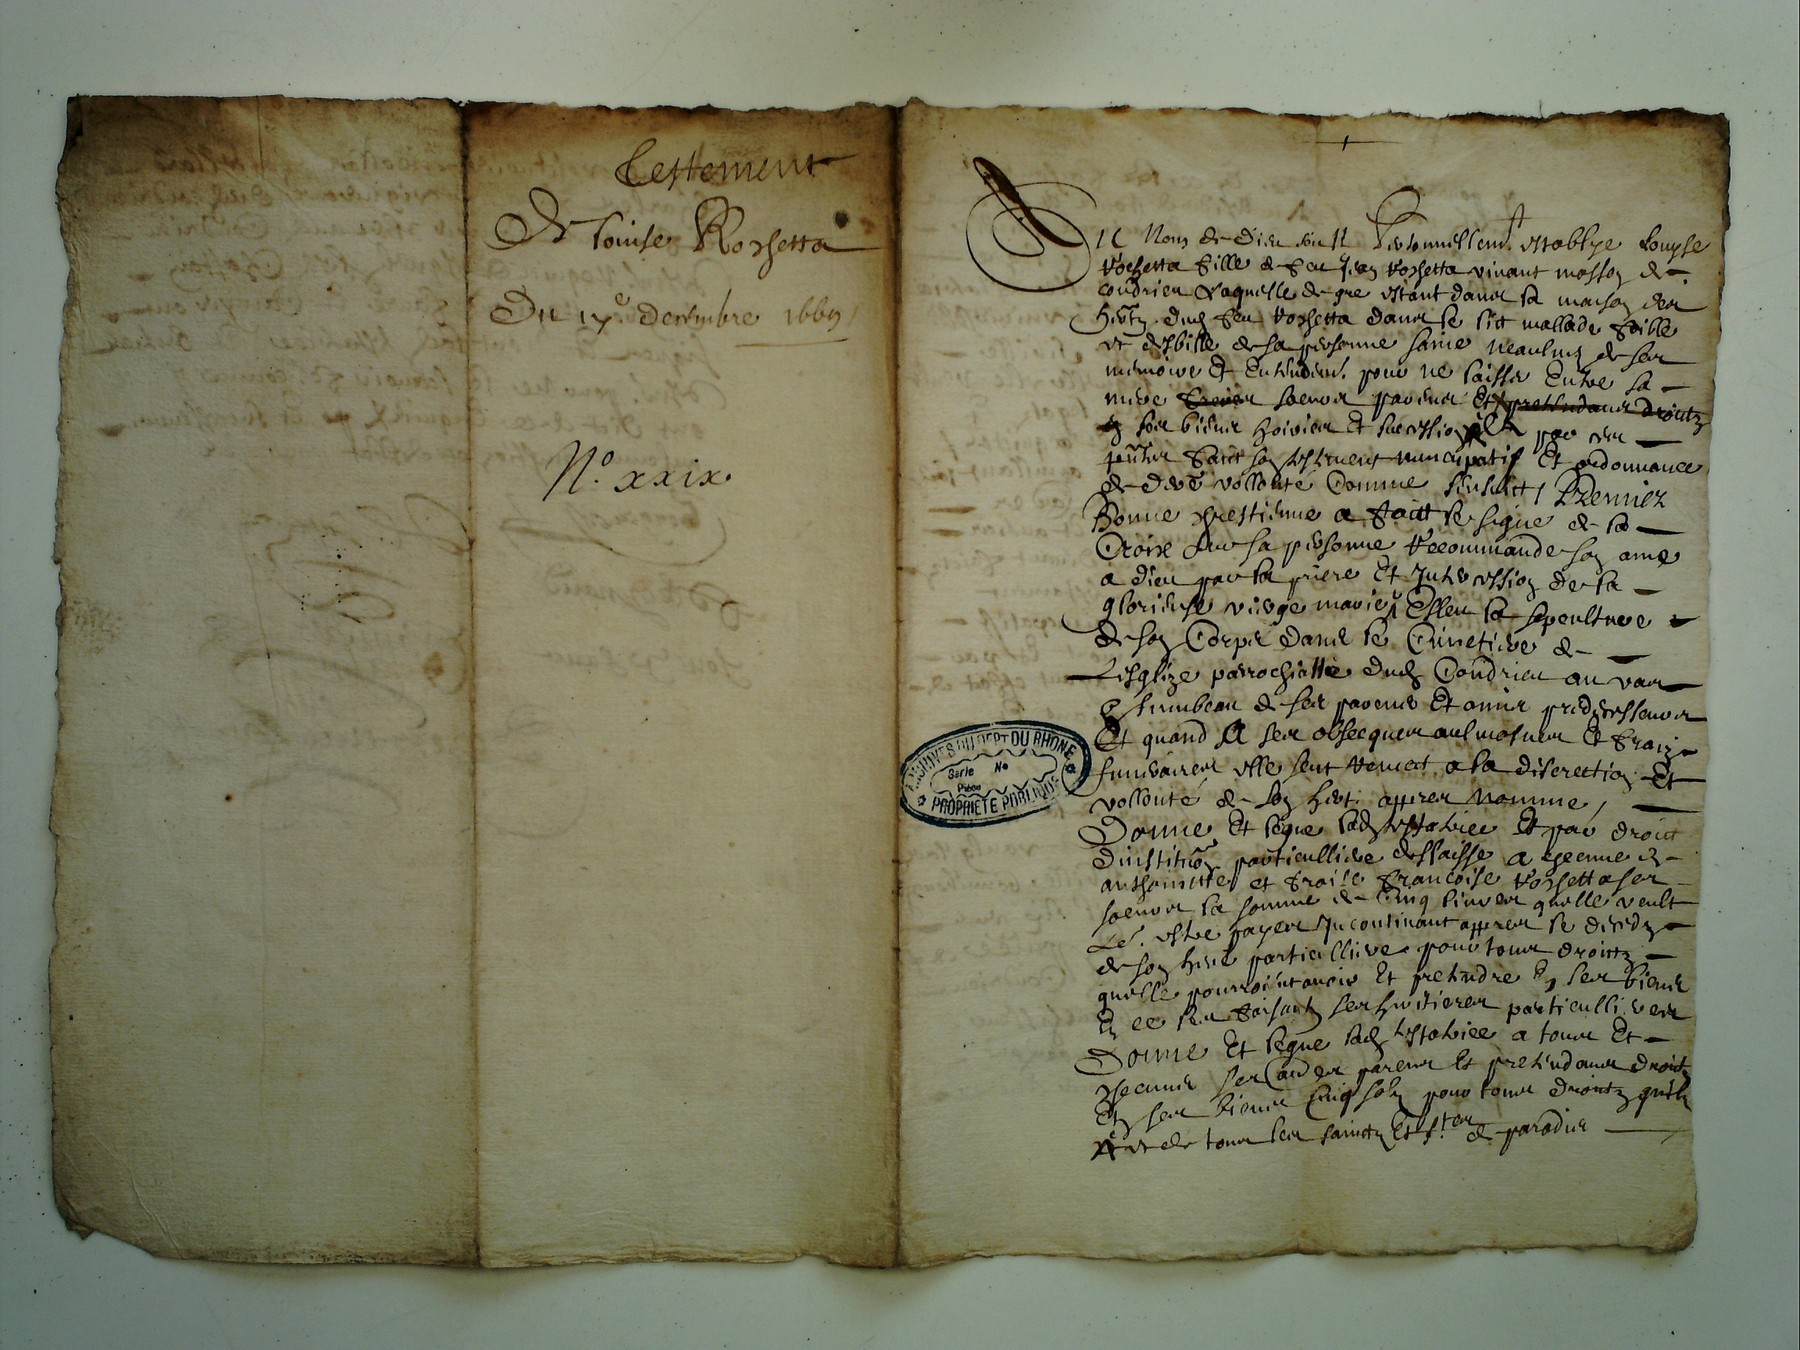 Testement
De Louise Rochetta
Du 17e decembre 1669
N.o xxix.
ARCHIVES DU DEPT DU RHONE
Serie No
Pièce
PROPRIÉTÉ PUBLIQUE
Au Nom de dieu soict Personnellemt establye Louyse
Rochetta fille de feu Jean Rochetta vivant masson de
Condrieu Laquelle de gre estant dans la maison des
hertz dud feu Rochetta dans le lict mallade foible
et debille de sa personne saine neaulmg de ses
memoire Et Entendemt pour ne laisser Entre sa
mere soeurs parens Et pretendans droictz
en ses biens hoiries Et succession par ces
pntes faict son testement nuncupatif Et ordonnance
de dere vollonté Comme sensuict / Premier
Bonne chrestienne a faict le signe de la
Croix sur sa personne Recommande son ame
a dieu par la priere Et Intercession de la
glorieuse vierge marie Esleu la sepulture
de son Corps dans le Cimetiere de
Lesglize parrochialle dud Condrieu au vas
Et tumbeau de ses parens Et amis predecesseurs
Et quand A ses obsecques aulmosnes Et fraiz
funeraires elle sent remect a la discrettion Et
vollonté de son hert. appres nommé /
Donne Et legue lad testatrice Et par droict
dinstitution particulliere dellaisse a
anthoinette et Françoise Rochetta ses
soeurs la somme de Cinq livres quelle veult
Le.r estre payer Incontinant appres le decedz
de son here particulliere pour tous droictz
quelle pourroient avoir Et pretendre En ses biens
En ce les faisant ses heritieres particullieres
Donne Et legue lad testatrice a tous Et
checuns ses aultres parens Et pretendans droictz
En ses biens Cinq solz pour tous droictz quilz
et de tous les sainctz Et s.tes de paradis